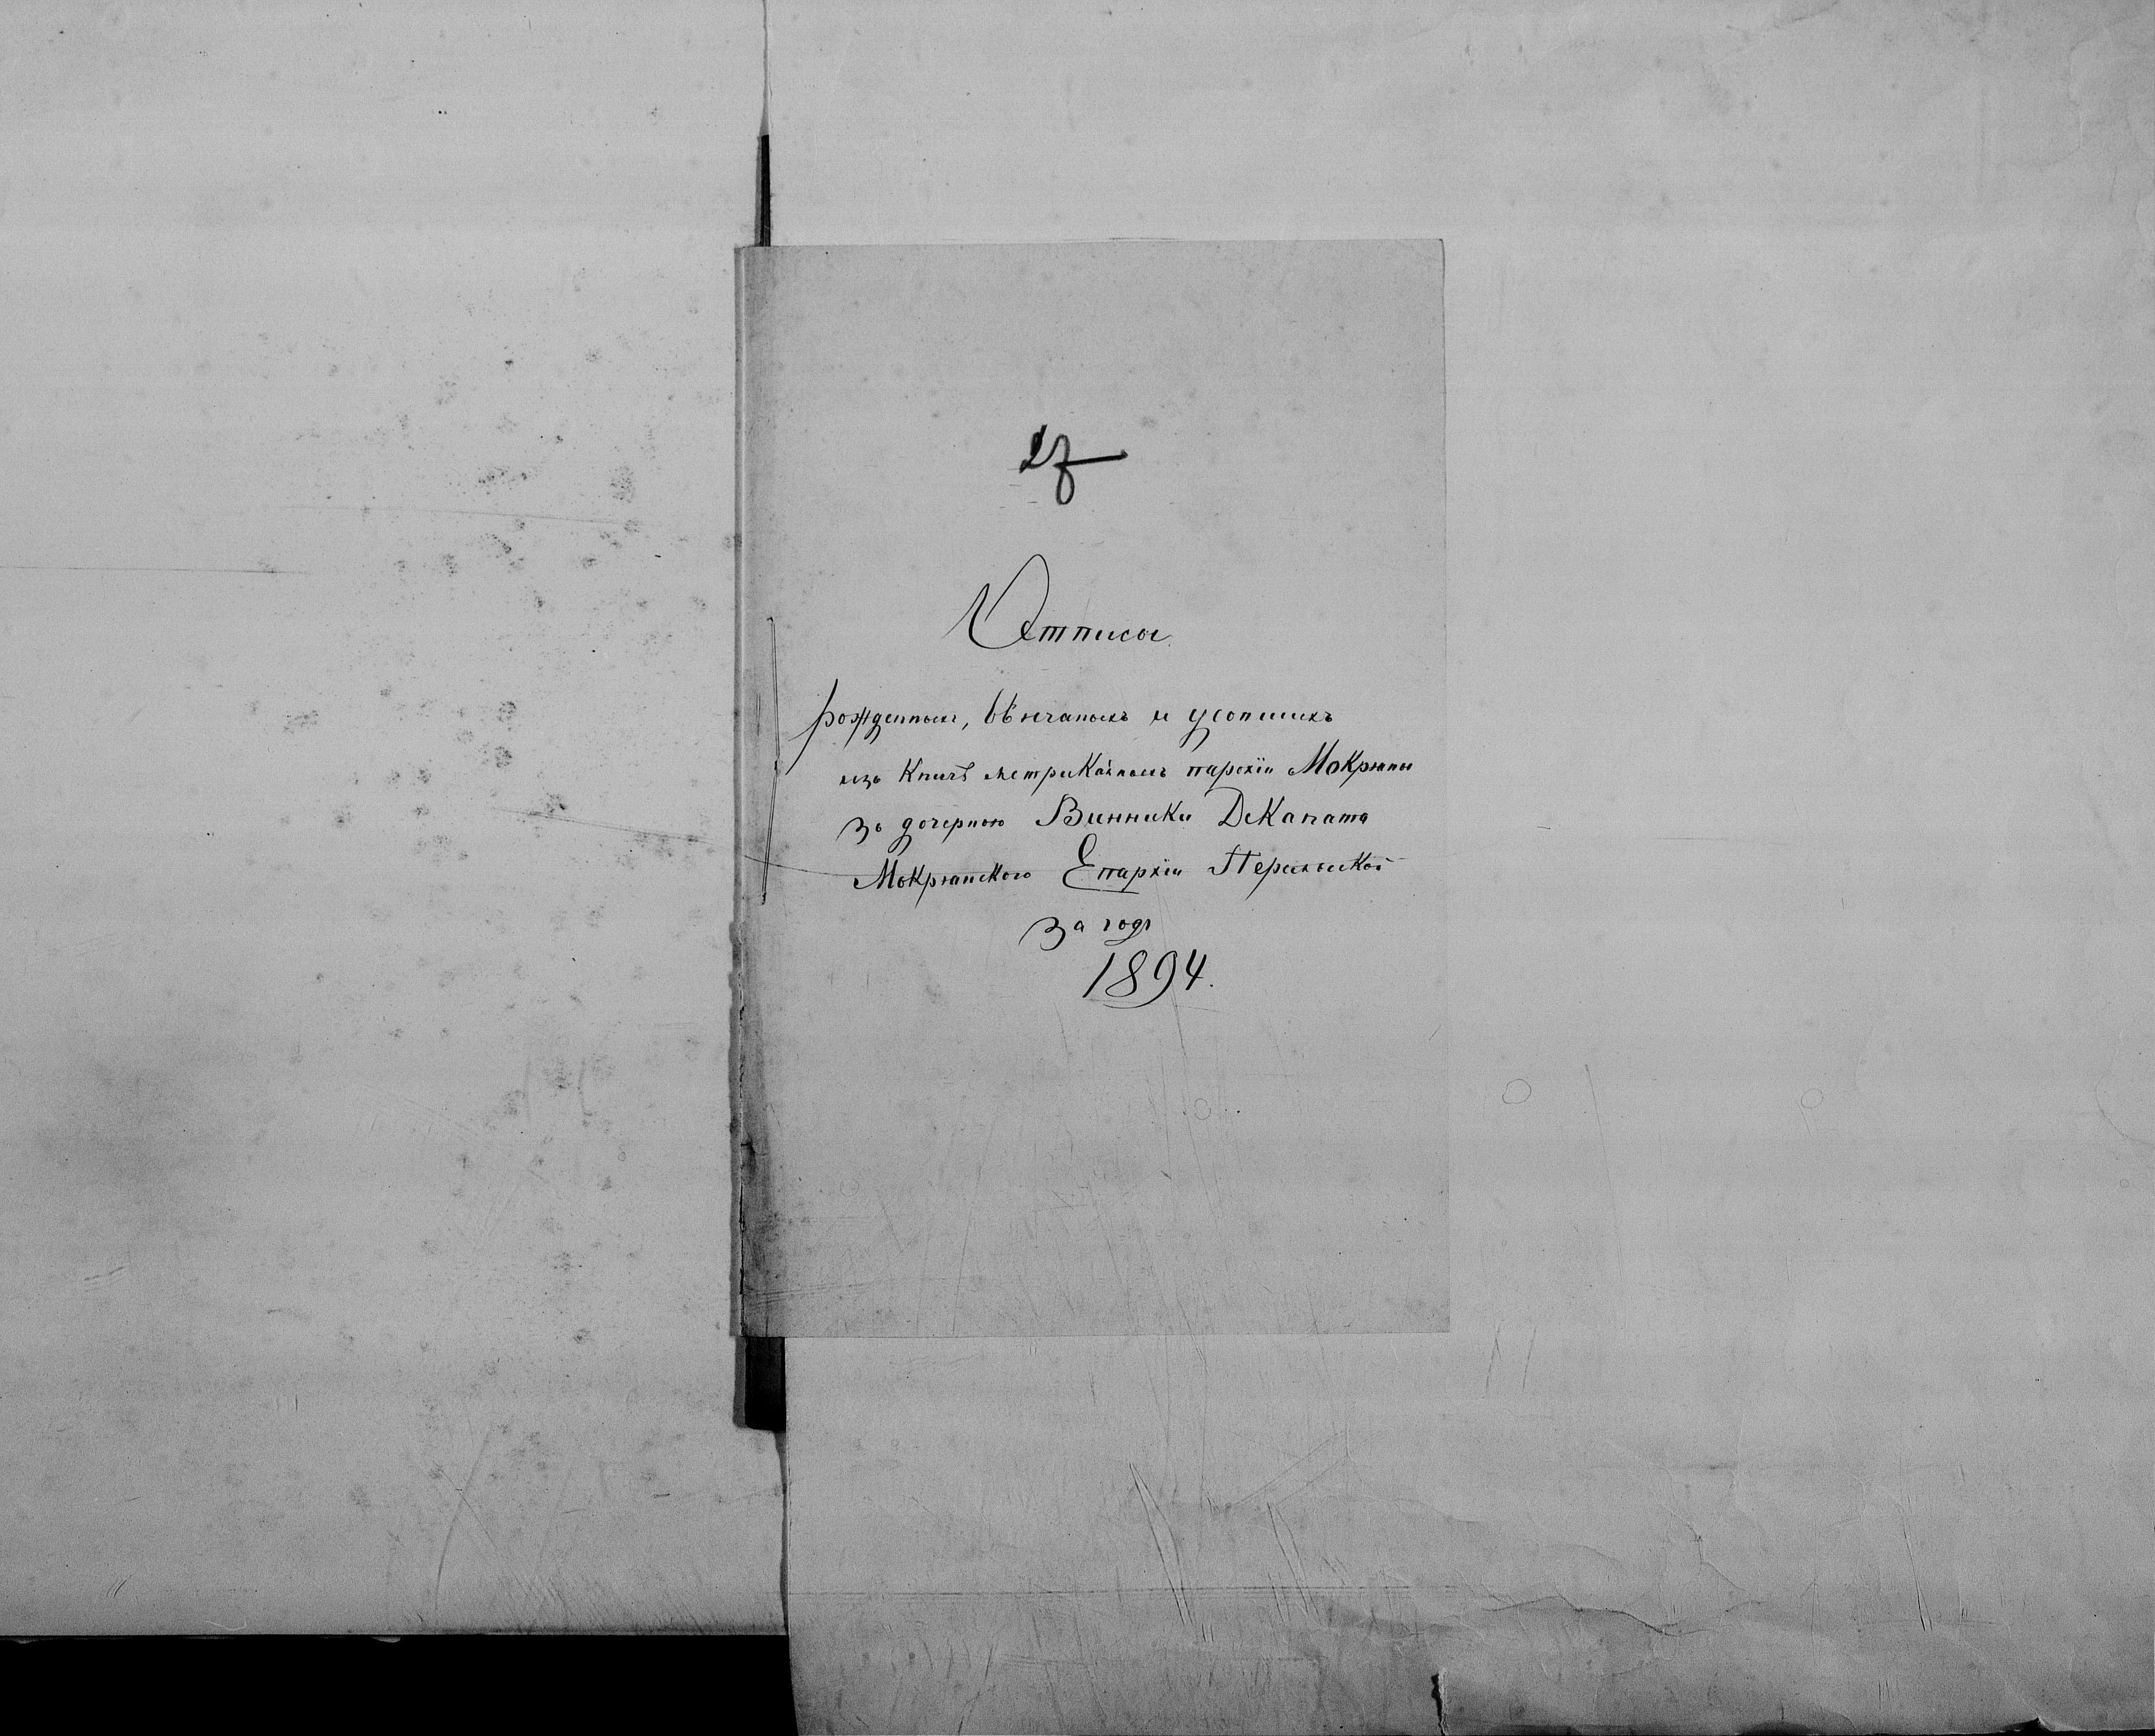 27
Отписы
рожденныхъ, вѣнчаныхъ и усопшихъ
изъ Книгъ метрикальныхъ парохіи Мокряны
зъ дочерною Винники Деканата
Мокрянского Епархіи Перемыской
За годъ
1894.